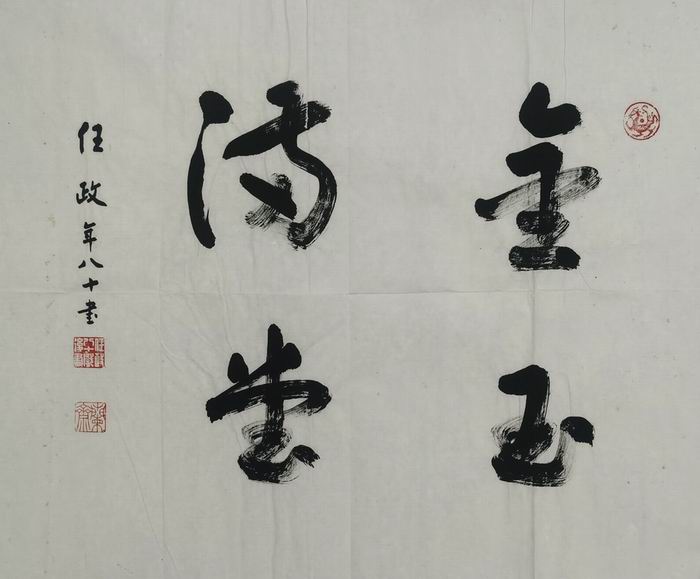 金玉
满堂
任政年八十书